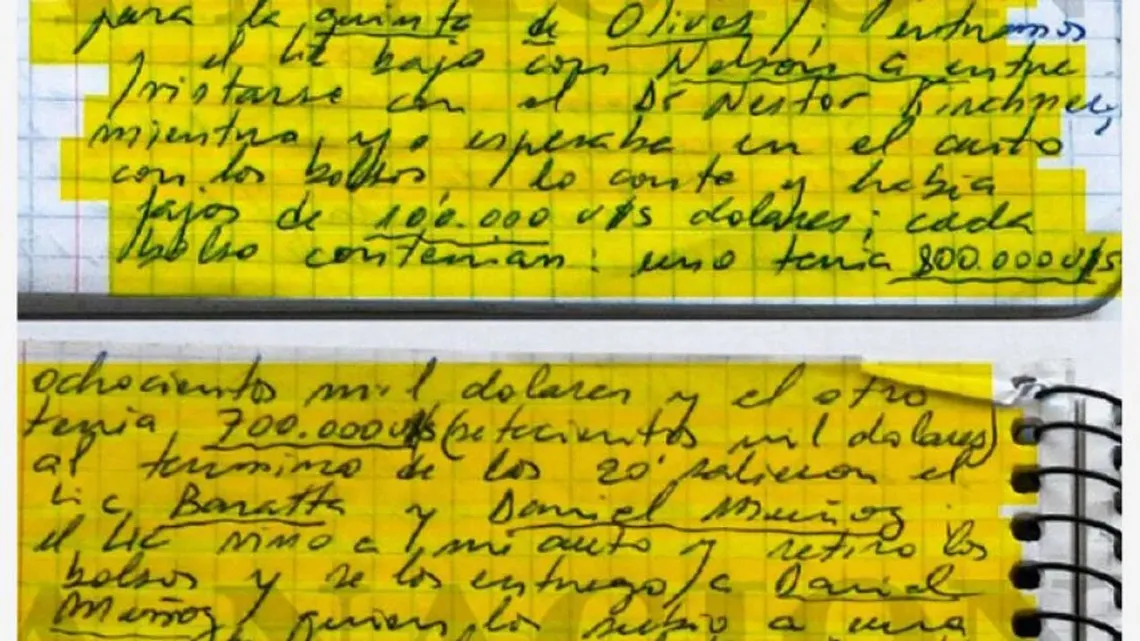 para la quinta de Olivos /; entramos
el lic bajo con Nelson a entre
/vistarse con el Dr Nestor Kirchner,
mientra, yo esperaba en el auto
con los bolsos, / lo conte y habia
fajos de 100.000 u$s dolares; cada
bolso contenian: uno tenia 800.000 u$s
ochocientos mil dolares y el otro
tenia 700.000 u$s (setecientos mil dolares)
al termino de los 20' salieron el
Lic Baratta y Daniel Muñoz.
el Lic vino a / mi auto y retiro los
bolsos y se los entrego / a Daniel
Muñoz / quien los subio a una